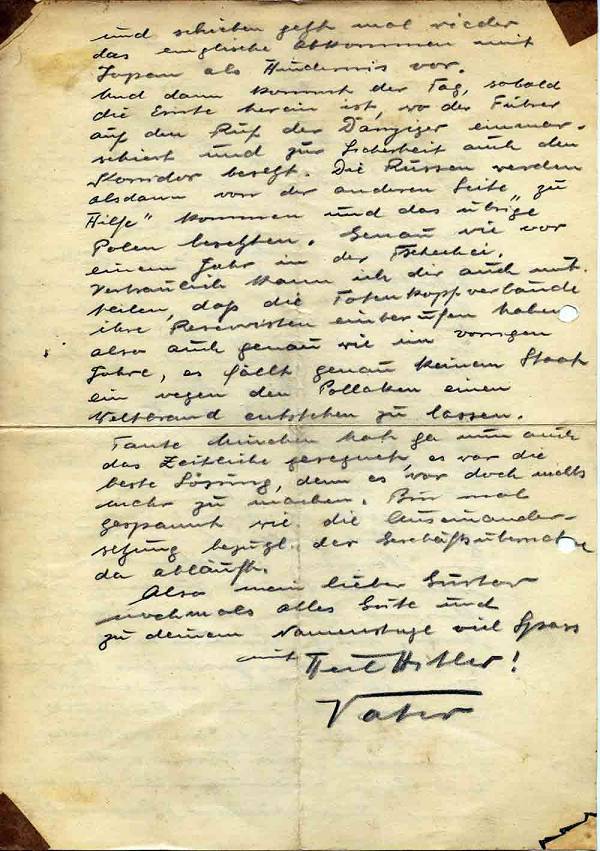 und schieben jetzt mal wieder
das englische Abkommen mit
Japan als Hindernis vor.
Und dann kommt der Tag, sobald
die Ernte herein ist, wo der Führer
auf den Ruf der Danziger einmar-
schiert und zur Sicherheit auch den
Korridor besetzt. Die Russen werden
alsdann von der anderen Seite „zu
Hilfe" kommen und das übrige
Polen besetzen. Genau wie vor
einem Jahr in der Tschechei.
Vertraulich kann ich dir auch mit-
teilen, daß die Totenkopfverbände
ihre Reservisten einberufen haben
also auch genau wie im vorigen
Jahre, es fällt genau keinem Staat
ein wegen den Pollaken einen
Weltbrand entstehen zu lassen.
Tante hat ja nun auch
das Zeitliche gesegnet, es war die
beste Lösung, denn es war doch nichts
mehr zu machen. Bin mal
gespannt wie die Auseinander-
setzung bezügl. der Geschäftsübernahme
da abläuft.
Also mein lieber Gustav
nochmals alles Gute und
zu deinem Namenstage viel Spass
mit Heil Hitler!
Vater